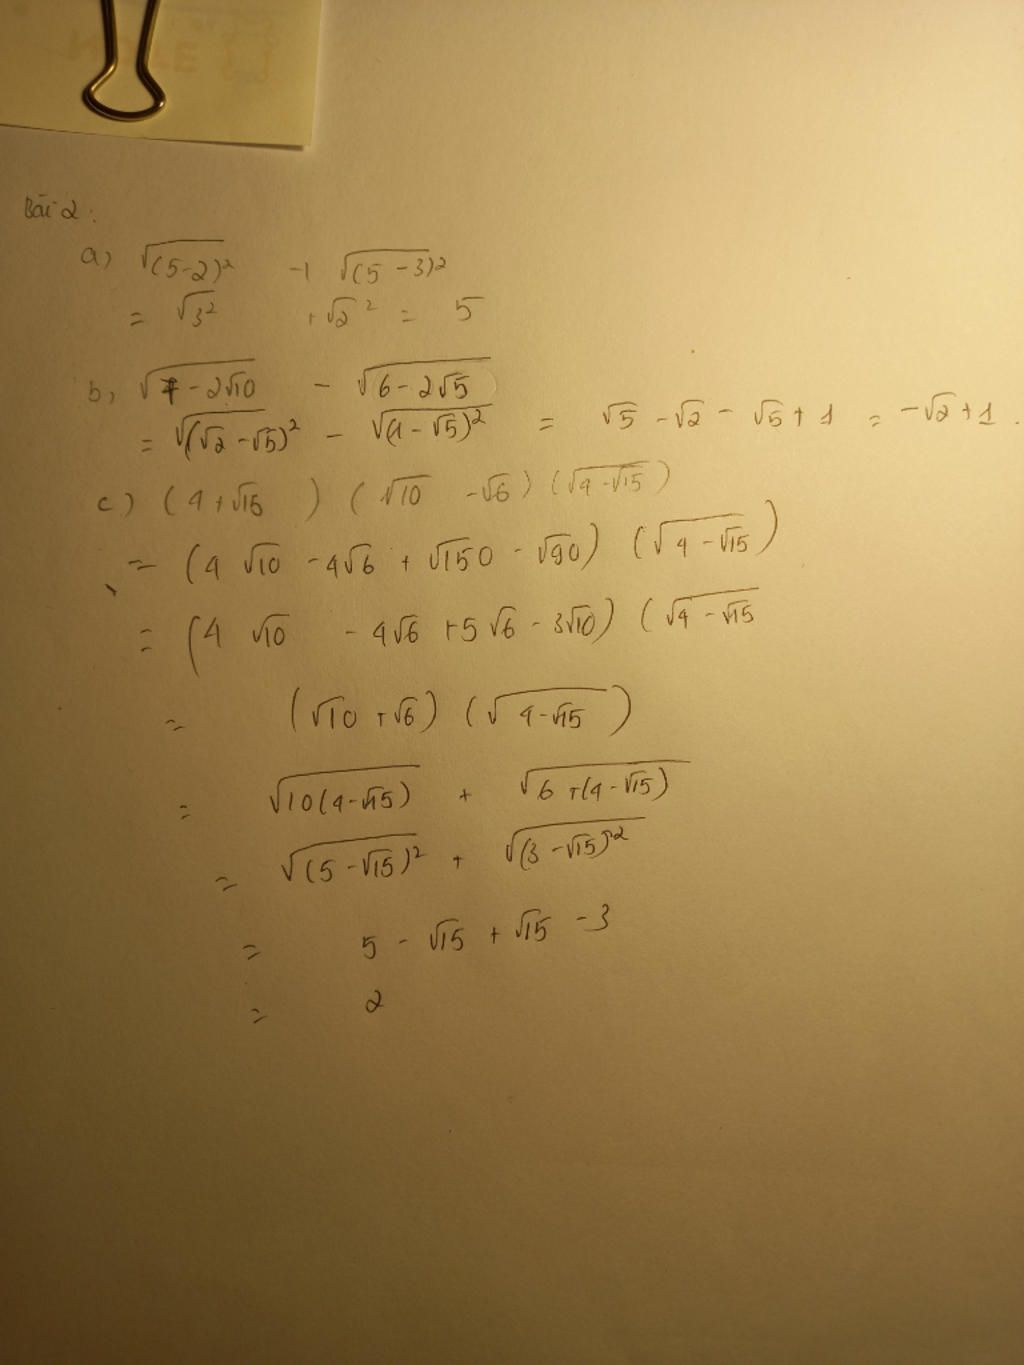 Bài 2:
a) √(5-2)² + √(5-3)²
= √3² + √2² = 5
b) √7-2√10 - √6-2√5
= √(√2-√5)² - √(1-√5)² = √5 - √2 - √5 + 1 = -√2 + 1.
c) (4+√15) (√10 - √6) (√4-√15)
= (4√10 - 4√6 + √150 - √90) (√4-√15)
= (4√10 - 4√6 + 5√6 - 3√10) (√4-√15
= (√10 + √6) (√4-√15)
= √10(4-√15) + √6+(4-√15)
= √(5-√15)² + √(3-√15)²
= 5 - √15 + √15 - 3
= 2